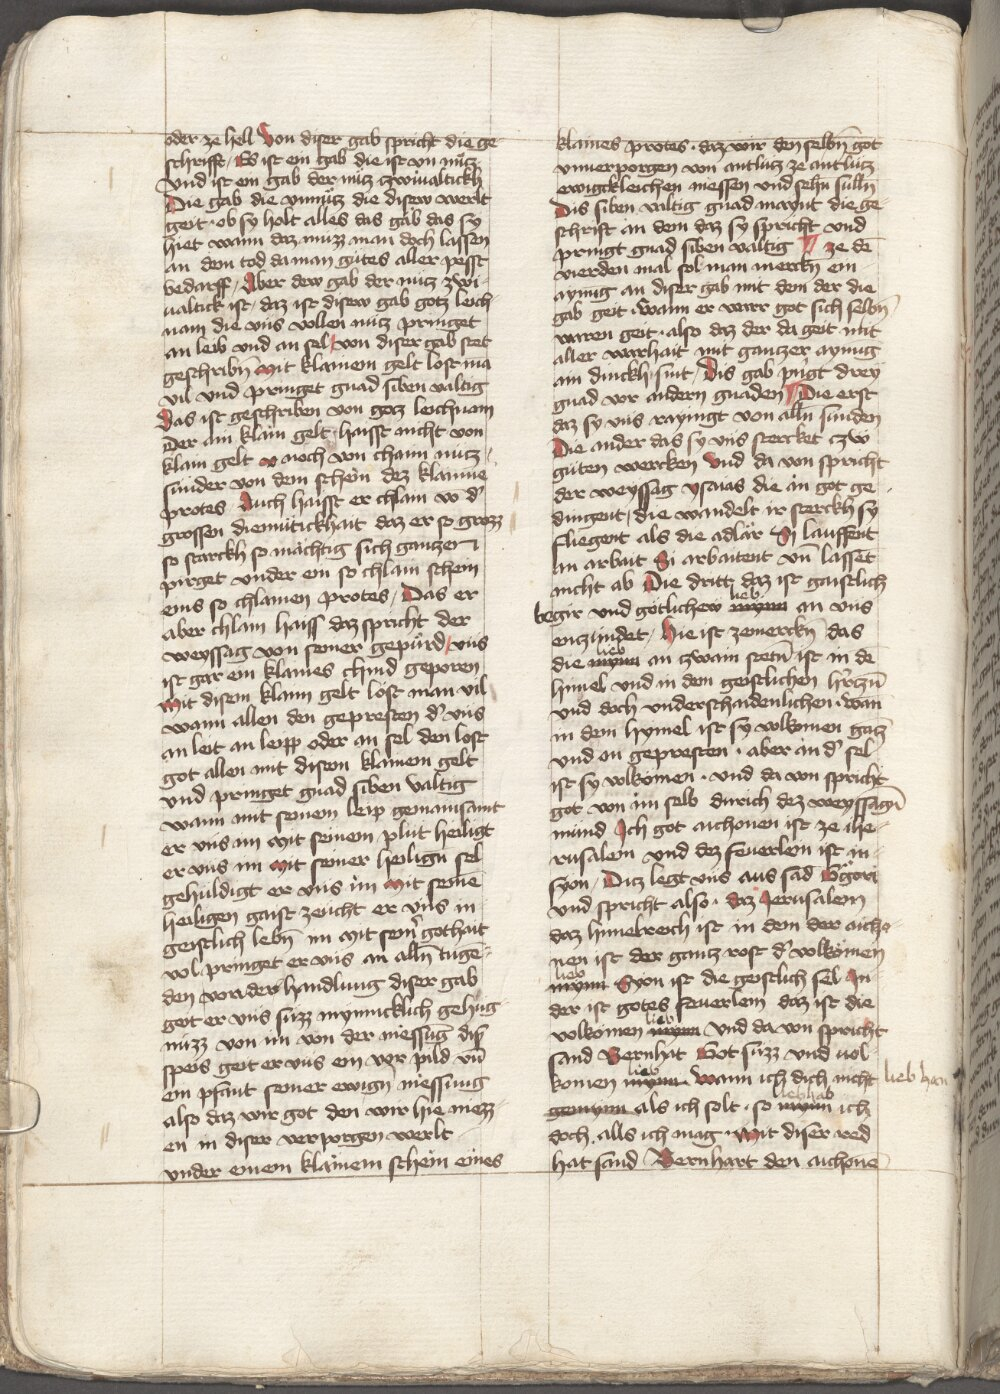 oder ze hell Von diser gab spricht die ge
schrifft / Es ist ein gab die ist vn nücz
Vnd ist ein gab der nücz czwiualtickh
Die gab die vnnücz die disew werlt
geit · ob sy holt alles das gäb das sy
hiet wann daz muzz man doch lassen
an dem tod da man gutes aller peste
bedarff / Aber dew gab der nücz zwi-
ualtick ist / daz ist disew gab gotz leich
nam die vns vollen nücz pringet
an leib vnd an sel / von diser gab stet
geschribn̄ Mit klainem gelt lost mā
vil vnd pringet gnad siben valtig
Das ist geschriben von gotz leichnam
Der ain klain gelt haisst nicht von
klain gelt noch von chain nücz
sunder von dem schein dez klainne
protes Auch haisst er chlain vō d'
grossen diemütickhait daz er so grozz
so starckh so mächtig sich ganczer
pirget vnder ein so chlain schein
eins so chlainen protes / Das er
aber chlain haiss daz spricht der
weyssag von seiner gepürd / vns
ist gar ein klaines chind geporen
Mit disem klain gelt löst man vil
wann allen den gepresten d' vns
an leit an leipp oder an sel den lost
got allen mit disem klainem gelt
vnd pringet gnad siben valtig
wann mit seinem leip gemainsamt
er vns im Mit seinem plüt heiligt
er vns im Mit seiner heilign̄ sel
gehuldigt er vns im Mit seinē
heiligen gaist zeucht er vns in
geistlich lebn̄ im Mit sein' gothait
vol pringet er vns an alln̄ tuge-
den von der handlung diser gab
geit er vns süzz mynnicklich gehüg
nüzz von im von der niessūg dis'
speis geit er vns ein vor pild vn̄
ein pfant seiner ewign̄ niessung
also daz wir got den wir hie niezz
en in diser verporgen werlt
vnder einem klainem schein eines
klaines protes · daz wir den selbn̄ got
vnuerporgen von antlütz ze antlütz
ewigckleichen niessen vnd sehn̄ sulln̄
Dis siben valtig gnad maynt die ge-
schrift an dem daz sy spricht vnd
pringt gnad siben valtig ¶ ze dē
vierden mal sol man merckn̄ ein
aynig an diser gab mit dem der die
gab geit · wann er warr got sich selbn̄
warren geit · also daz der da geit mit
aller warhait mit gantzer aynig
ain dinckh sint / Dis gab pn̄gt drey
gnad vor andern gnaden ¶ Die erst
daz sy vns raynigt von alln̄ sunden
Die ander das sy vns stercket czw
guten wercken Vnd da von spricht
der weyssag ysaias die in got ge
dingent / die wandelt ir sterckh sy
fliegent als die adlär Si lauffent
an arbait Si arbaitent vn̄ lassēt
nicht ab Die dritt daz ist gaistlich
begir vnd götlichew mynn lieb an vns
enczündet / Hie ist zemerckn̄ das
die mynn lieb an zwain stetn̄ ist in dē
himel vnd in dem geistlichen hertzn̄
vnd doch vnderschaidenlichen · wan
in dem hymel ist sy volkomen gātz
vnd on gepresten · aber in d' sel
ist sy volkömen · vnd da von spricht
got von im selb durich dez weyssagn̄
mund Ich got aichonen ist ze ihe-
rusalem vnd dez feuerlein ist in
syon / Ditz legt vns aus sād Gġori
vnd spricht also · daz Jerusalem
daz himelreich ist in dem der aicho-
nen ist der gantz rost d' volkömen
mynn lieb Syon ist die geistlich sel In
der ist gotes feuerlein daz ist die
volkomen mynn lieb Vnd da von spricht
sand Bernhāt Got süzz vnd vol-
komen mynn lieb Wann ich dich nicht lieb han
gemynn als ich solt · so mynn liebhab ich
doch · alls ich mag · Mit diser red
hat sand Bernhart den aichonē